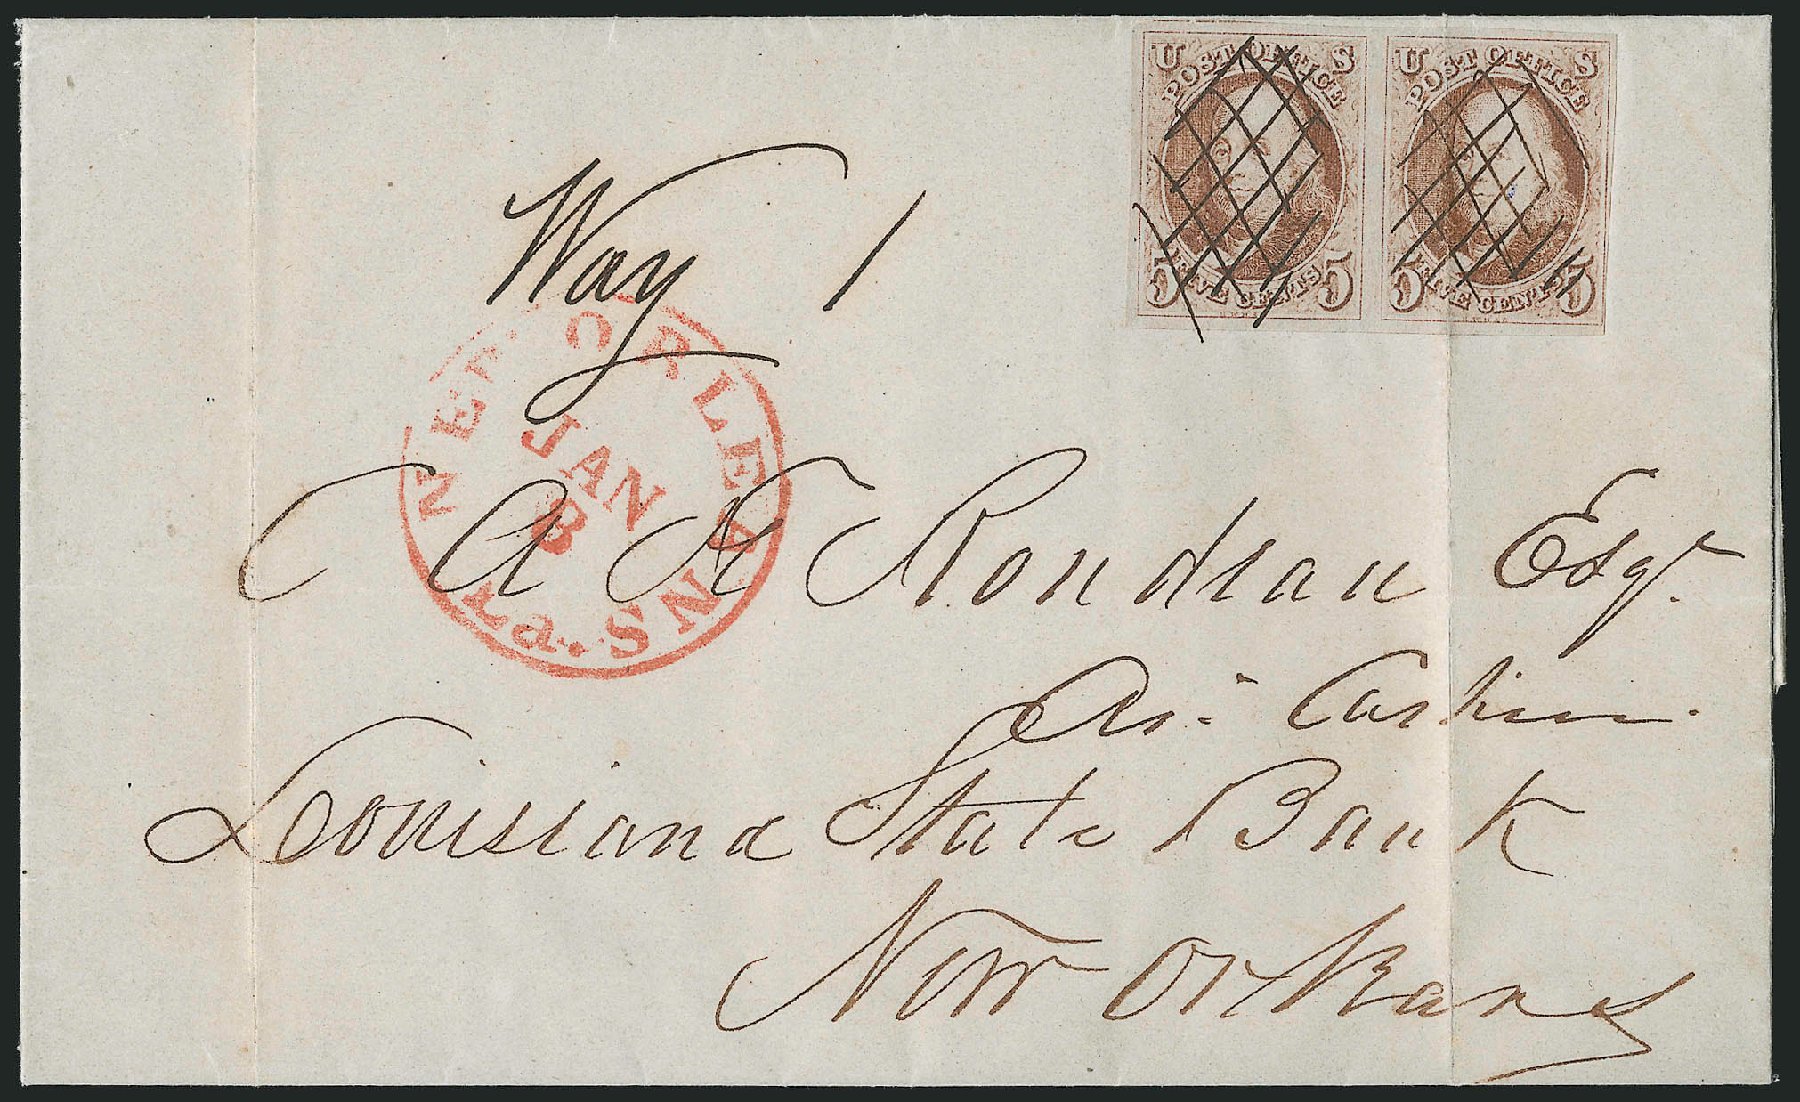 U S U S
POST OFFICE POST OFFICE
5 FIVE CENTS 5 5 FIVE CENTS 5
Way 1
NEW ORLEANS La.
JAN
8
A N Rondrau Esqr
As: Cashier.
Louisiana State Bank
New Orleans